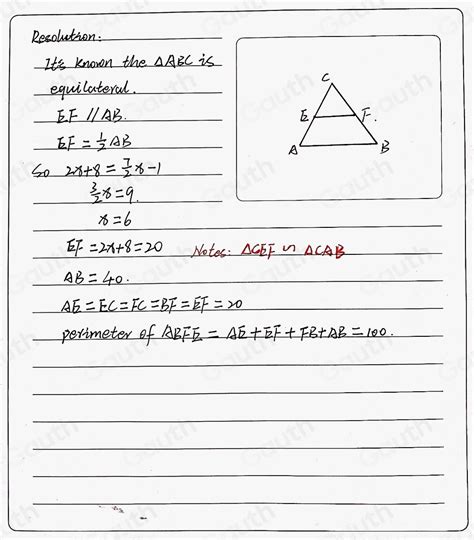 Resolution:
It's known the △ABC is
equilateral.
EF // AB.
EF = 1/2 AB
So 2x+8 = 7/2 x-1
3/2 x = 9
x = 6
EF = 2x+8 = 20
Notes: △CEF ∽ △CAB
AB = 40.
AE = EC = FC = BF = EF = 20
perimeter of ABFE = AE + EF + FB + AB = 100.
C
E
F.
A
B
Gauth